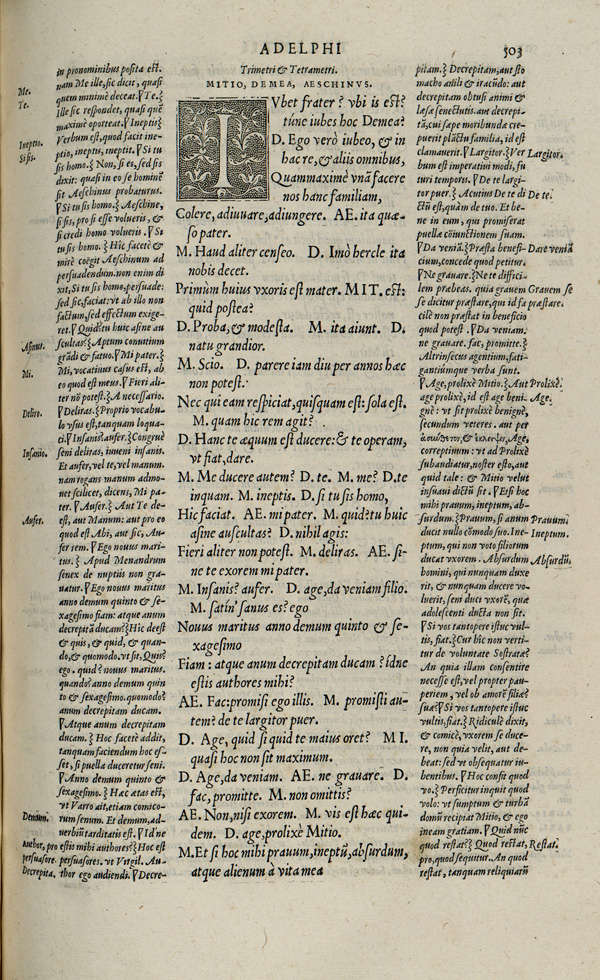 ADELPHI 503
Trimetri & Tetrametri.
MITIO, DEMEA, AESCHINVS.
in pronominibus posita est.
nam Me ille, sic dicit, quasi
quem minimè deceat. Te.
ille sic respõdet, quasi quẽ
maximè oporteat. Ineptis
Verbum est, quod facit ine-
ptio, ineptis, ineptit. Si tu
sis homo. Non, si es, sed sis
dixit: quasi in eo se hominẽ
sit Aeschinus probaturus.
Si tu sis homo. Aeschine,
si sis, pro si esse volueris, &
si credi homo volueris. Si
tu sis homo. Hîc facetè &
mirè coëgit Aeschinum ad
persuadendum. non enim di
xit, Si tu sis homo, persuade:
sed sic, faciat: vt ab illo non
factum, sed effectum exige-
ret. Quid? tu huic asine au
scultas? Aptum conuitium
grãdi & fatuo. Mi pater.
Mi, vocatiuus casus est, ab
eo quod est meus. Fieri ali-
ter nõ potest. A necessario.
Deliras. Proprio vocabu-
lo vsus est, tanquam loqua-
ci. Insanis? aufer. Congruè
seni deliras, iuueni insanis.
Et aufer, vel te, vel manum.
nam rogans manum admo-
uet scilicet, dicens, Mi pa-
ter. Aufer. Aut Te de-
est, aut Manum: aut pro eo
quod est Abi, aut sic, Au-
fer rem. Ego nouus mari-
tus. Apud Menandrum
senex de nuptiis non gra-
uatur. Ego nouus maritus
anno demum quinto & se-
xagesimo fiam: atque anum
decrepitã ducam? Hîc deest
& quis, & quid, & quan-
do, & quomodo. vt sit, Quis?
ego. quid? nouus maritus.
quando? anno demum quin
to & sexagesimo. quomodo?
anum decrepitam ducam.
Atque anum decrepitam
ducam. Hoc facetè addit,
tanquam faciendum hoc es-
set, si puella duceretur seni.
Anno demum quinto &
sexagesimo. Hæc ætas est,
vt Varro ait, etiam comico-
rum senum. Et demum, ad-
uerbiũ tarditatis est. Id'ne
pro estis mihi authores? Hoc est
persuasores. vt Virgil. Au-
thor ego audiendi. Decre-
Me.
Te.
Ineptio.
Si sis.
Asinus.
Mi.
Deliro.
Insanio.
Aufer.
Demum.
Author,
persuasore.
Decrepita.
IVbet frater? vbi is est?
túne iubes hoc Demea?
D. Ego verò iubeo, & in
hac re, & aliis omnibus,
Quammaximè vnã facere
nos hanc familiam,
Colere, adiuuare, adiungere. AE. ita quæ-
so pater.
M. Haud aliter censeo. D. Imò hercle ita
nobis decet.
Primùm huius vxoris est mater. MIT. est:
quid postea?
D. Proba, & modesta. M. ita aiunt. D.
natu grandior.
M. Scio. D. parere iam diu per annos hæc
non potest.
Nec qui eam respiciat, quisquam est: sola est.
M. quam hic rem agit?
D. Hanc te æquum est ducere: & te operam,
vt fiat, dare.
M. Me ducere autem? D. te. M. me? D. te
inquam. M. ineptis. D. si tu sis homo,
Hic faciat. AE. mi pater. M. quid? tu huic
asine auscultas? D. nihil agis:
Fieri aliter non potest. M. deliras. AE. si-
ne te exorem mi pater.
M. Insanis? aufer. D. age, da veniam filio.
M. satin' sanus es? ego
Nouus maritus anno demum quinto & se-
xagesimo
Fiam: atque anum decrepitam ducam? idne
estis authores mihi?
AE. Fac: promisi ego illis. M. promisti au-
tem? de te largitor puer.
D. Age, quid si quid te maius oret? MI.
quasi hoc non sit maximum.
D. Age, da veniam. AE. ne grauare. D.
fac, promitte. M. non omittis?
AE. Non, nisi exorem. M. vis est hæc qui-
dem. D. age, prolixè Mitio.
M. Et si hoc mihi prauum, ineptũ, absurdum,
atque alienum à vita mea
pitam. Decrepitam, aut sto
macho anili & iracũdo: aut
decrepitam obtusi animi &
læsæ senectutis. aut decrepi-
tã, cui sæpe moribundæ cre-
puerit plãctu familia, id est
clamauerit. Largitor. Ver
bum est imperatiui modi, fu
turi temporis. De te largi-
tor puer. Acutius De te di
ctũ est, quàm de tuo. Et be-
ne in eum, qui promiserat
puellæ cõiunctionem suam.
Da veniã. Præsta benefi-
cium, concede quod petitur.
Ne grauare. Ne te diffici-
lem præbeas. quia grauem
se dicitur præstare, qui id fa
cilè non præstat in beneficio
quod potest. Da veniam.
ne grauare. fac, promitte.
Altrinsecus agentium, fati-
gantiúmque verba sunt.
Age, prolixè Mitio. Aut
age prolixè, id est age beni-
gnè: vt sit prolixè benignè,
secundum veteres. aut per
Age,
correptiuum: vt ad Prolixè
subaudiatur, noster esto, aut
quid tale: & Mitio velut
insuaui dictũ sit. Etsi hoc
mihi prauum, ineptum, ab-
surdum. Prauum, si anum
ducit nullo cõmodo suo. Ine-
ptum, qui non voto filiorum
ducat vxorem. Absurdum
homini, qui nunquam duxe
rit, & nunquam ducere vo-
luerit, seni duci vxorẽ, quæ
adolescenti ducta non sit.
Si vos tantopere istuc vul-
tis, fiat. Cur hîc non verti-
tur de voluntate Sostratæ?
An quia illam consentire
necesse est, vel propter pau-
periem, vel ob amorẽ filiæ
suæ? Si vos tantopere istuc
vultis, fiat. Ridiculè dixit,
& comicè, vxorem se duce-
re, non quia velit, aut de-
beat: sed vt obsequatur iu-
bentibus. Hoc confit quod
vo. Perficitur inquit quod
volo: vt sumptum & turbã
domũ recipiat Mitio, & ego
ineam gratiam. Quid nũc
quod restat? Quod restat,
pro, quod sequitur. An quod
restat, tanquam reliquiarũ
Largitor.
De te.
Dare veniã
Grauem se
præstare.
Prolixè.
Age.
Prauum
Ineptum.
Absurdũ.
Restat.